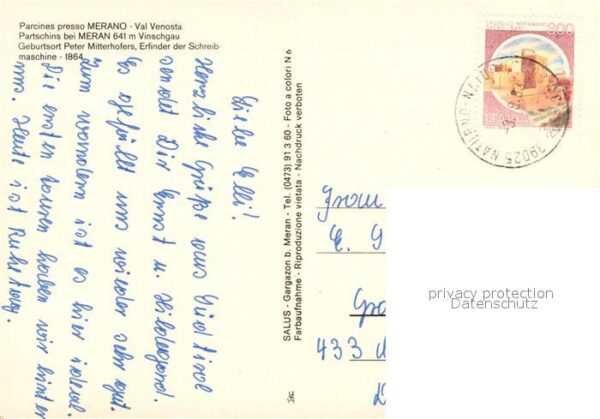 Parcines presso MERANO - Val Venosta
Partschins bei MERAN 641 m Vinschgau
Geburtsort Peter Mitterhofers, Erfinder der Schreib-
maschine - 1864
Liebe Elli!
Herzliche Grüße aus Südtirol
sendet Dir Ernst u. Hildegard.
Es gefällt uns wieder sehr gut.
Zum wandern ist es hier ideal.
Die ersten touren haben wir hinter
uns. Heute ist Ruhetag.
SALUS - Gargazon b. Meran - Tel. (0473) 91 3 60 - Foto a colori N 6
Farbaufnahme - Riproduzione vietata - Nachdruck verboten
CASTELLO NORMANNO
SVEVO BARI
300
ITALIA
39025 NATURNO-NATURNS
Frau
E.
433
privacy protection
Datenschutz